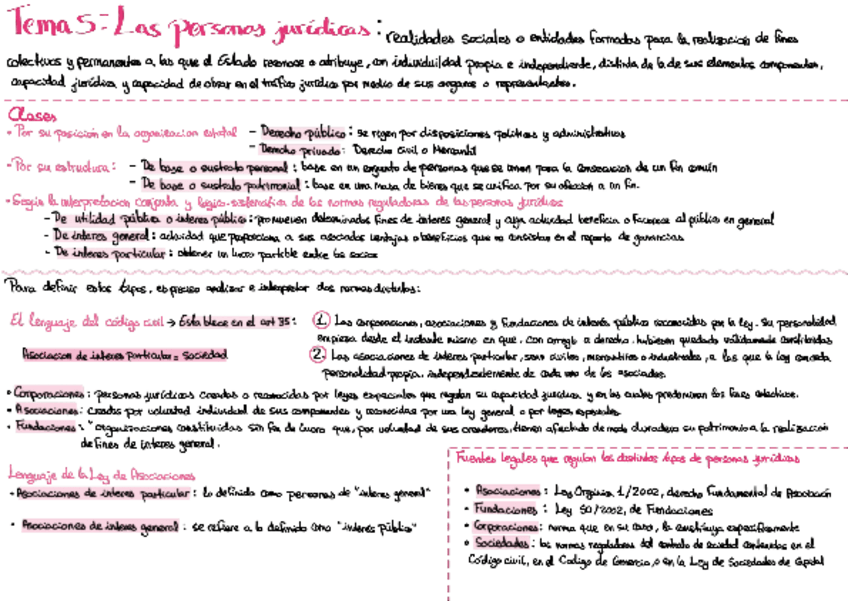 Tema 5 = Las personas jurídicas: realidades sociales o entidades formadas para la realización de fines
colectivos y permanentes a las que el Estado reconoce o atribuye, con individualidad propia e independiente, distinta de la de sus elementos componentes,
capacidad jurídica y capacidad de obrar en el tráfico jurídico por medio de sus órganos o representantes.
Clases
• Por su posición en la organización estatal
- Derecho público: se rigen por disposiciones políticas y administrativas
- Derecho privado: Derecho Civil o Mercantil
• Por su estructura:
- De base o sustrato personal: base en un conjunto de personas que se unen para la consecución de un fin común
- De base o sustrato patrimonial: base en una masa de bienes que se unifica por su afección a un fin.
• Según la interpretación conjunta y lógico-sistemática de las normas reguladoras de las personas jurídicas
- De utilidad pública o interés público: promueven determinados fines de interés general y cuya actividad beneficia o favorece al público en general
- De interes general: actividad que proporciona a sus asociados ventajas o beneficios que no consistan en el reparto de ganancias
- De interes particular: obtener un lucro partible entre los socios
Para definir estos tipos, es preciso analizar e interpretar dos normas distintas:
El lenguaje del código civil → Establece en el art 35:
1. Las corporaciones, asociaciones y fundaciones de interés público reconocidas por la ley. Su personalidad
empieza desde el instante mismo en que, con arreglo a derecho, hubiesen quedado válidamente constituidas
Asociacion de interes particular = Sociedad
2. Las asociaciones de interes particular, sean civiles, mercantiles o industriales, a las que la ley conceda
personalidad propia, independientemente de cada uno de los asociados.
• Corporaciones: personas jurídicas creadas o reconocidas por leyes especiales que regulan su capacidad jurídica y en las cuales predominan los fines colectivos.
• Asociaciones: Creadas por voluntad individual de sus componentes y reconocidas por una ley general o por leyes especiales.
• Fundaciones: "organizaciones constituidas sin fin de lucro que, por voluntad de sus creadores, tienen afectado de modo duradero su patrimonio a la realización
de fines de interes general.
Lenguaje de la Ley de Asociaciones
• Asociaciones de interes particular: lo definido como personas de "interes general"
• Asociaciones de interes general: se refiere a lo definido como "interes Público"
Fuentes legales que regulan los distintos tipos de personas jurídicas
• Asociaciones: Ley Orgánica 1/2002, derecho Fundamental de Asociación
• Fundaciones: Ley 50/2002, de Fundaciones
• Corporaciones: norma que en su caso, la constituya específicamente
• Sociedades: las normas reguladoras del contrato de sociedad contenidas en el
Código civil, en el Codigo de Comercio, o en la Ley de Sociedades de Capital